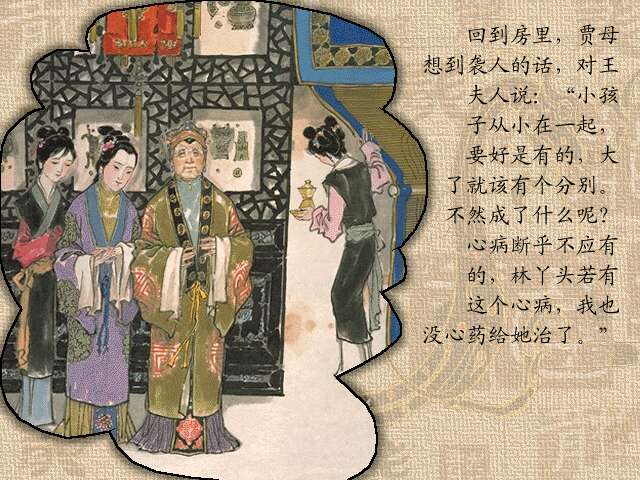 回到房里，贾母
想到袭人的话，对王
夫人说：“小孩
子从小在一起，
要好是有的，大
了就该有个分别。
不然成了什么呢？
心病断乎不应有
的，林丫头若有
这个心病，我也
没心药给她治了。”